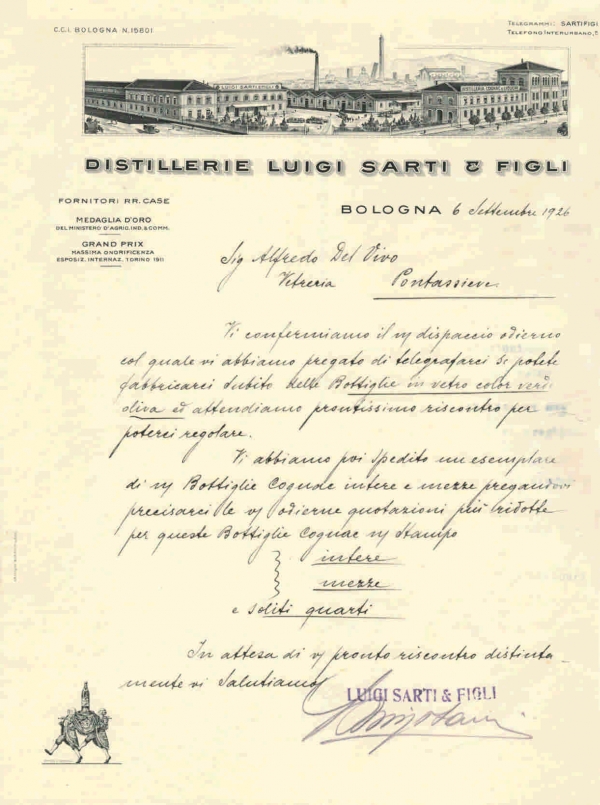 C.C.I. BOLOGNA N. 15801
TELEGRAMMI: SARTIFIGLI
TELEFONO INTERURBANO, 5
LUIGI SARTI & FIGLI
DISTILLERIA COGNAC & LIQUORI
DISTILLERIE LUIGI SARTI & FIGLI
FORNITORI RR. CASE
MEDAGLIA D'ORO
DEL MINISTERO D'AGRIC. IND. & COMM.
GRAND PRIX
MASSIMA ONORIFICENZA
ESPOSIZ. INTERNAZ. TORINO 1911
BOLOGNA 6 Settembre 1926
Sig Alfredo Del Vivo
Vetreria Pontassieve
Vi confermiamo il n/ dispaccio odierno
col quale vi abbiamo pregato di telegrafarci se potete
fabbricarci subito delle Bottiglie in vetro color verde
oliva ed attendiamo prontissimo riscontro per
poterci regolare.
Vi abbiamo poi spedito un esemplare
di n/ Bottiglie Cognac intere e mezze pregandovi
precisarci le v/ odierne quotazioni più ridotte
per queste Bottiglie Cognac n/ stampo
intere
mezze
e soliti quarti
In attesa di v/ pronto riscontro distinta
mente vi salutiamo
LUIGI SARTI & FIGLI